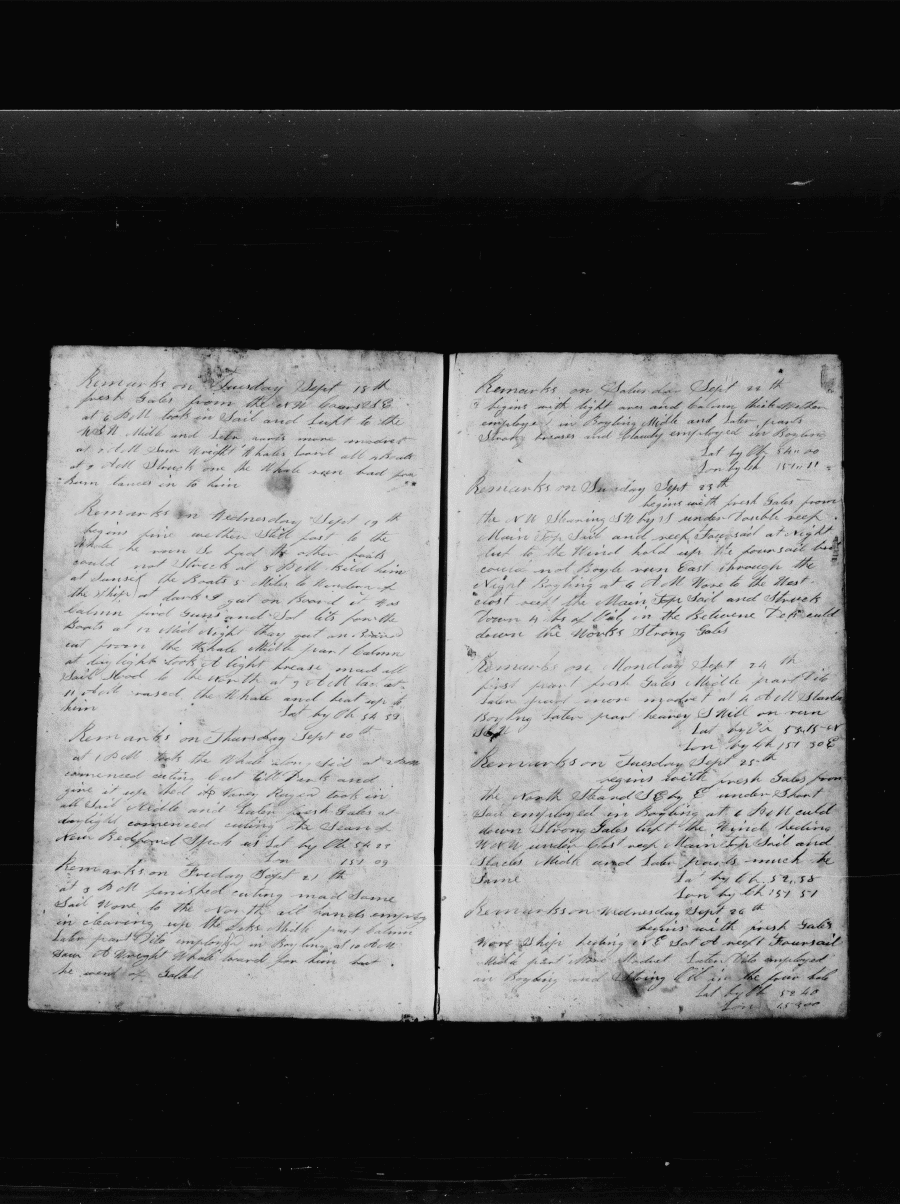 Remarks on Tuesday Sept 18th
fresh Gales from the NW Cours SSE
at 6 PM took in Sail and Luft to the
WSW Midle and Later parts more modret
at 7 AM Saw Weight Whales lowrd all a Boats
at 9 AM Struck one the Whale ren bad for
Burn lances in to him
Remarks on Wednesday Sept 19th
begins fine wether Still fast to the
Whale he ren So bad the other boats
could not Streck at 3 PM Kild him
at Sunset the Boats 5 Miles to Windard of
the Ship at dark I got on Board it was
Calmn fired Guns and Sot lits for the
Boats at 12 Mid Night they got on Board
cut from the Whale Midle part Calmn
at daylight took A light brease mad all
Sail Stood to the North at 9 AM
11 AM rased the Whale and beat up to
him Lat by Ob 54 59
Remarks on Thursday Sept 20th
at 1 PM took the Whale along Sid at 2 PM
comenced cuting Cut till Dark and
give it up Bed A Havey Ruged took in
all Sail Midle and Later fresh Gales at
daylight comenced cuting the Sean of
New Bedford Spoke us Lat by Ob 54 25
Lon 151 09
Remarks on Friday Sept 21th
at 3 PM finished cuting mad Some
Sail Wore to the North all hands employ
in cleaving up the Midle part Calmn
Later part Dito employed in Boyling at 10 AM
Saw A Wright Whale lowrd for him but
he went of
Remarks on Saturday Sept 22th
begins with light ares and Calmn thick Wether
employed in Boyling Midle and Later parts
Strong breases and Cloudy employed in Boyling
Lat by Ob 54 00
Lon by Ch 151 11
Remarks on Sunday Sept 23th
begins with fresh Gales from
the NW Stearing SW by S under Double reef
Main Top Sail and reef Foursail at Night
luft to the Wind hald up the foursail but
could not Boyle ren East through the
Night Boyling at 6 AM Wore to the West
clost reeft the Main Top Sail and Struck
Down 4 bs of Oil in the Between Deck culd
down the Works Strong Gales
Remarks on Monday Sept 24th
first part fresh Gales Midle part Dito
Later part more modret at 4 AM Starte
Boyling Later part heavey Swell on ren
SW Lat by Ob 53 15 N
Lon by Ch 151 30 E
Remarks on Tuesday Sept 25th
begins with fresh Gales from
the North Steard SE by E under Short
Sail employed in Boyling at 6 PM culd
down Strong Gales luft the Wind heding
WNW under Clost reef Main Top Sail and
Stacles Midle and Later parts much the
Same Lat by Ob 52,38
Lon by Ch 151 51
Remarks on Wednesday Sept 26th
begins with fresh Gales
Wore Ship heding NE Sot A reeft Foursail
Midle part More Modret Later Dito employed
in Boyling and Stowing Oil in the four hole
Lat by Ob 52 40
Lon 152 00